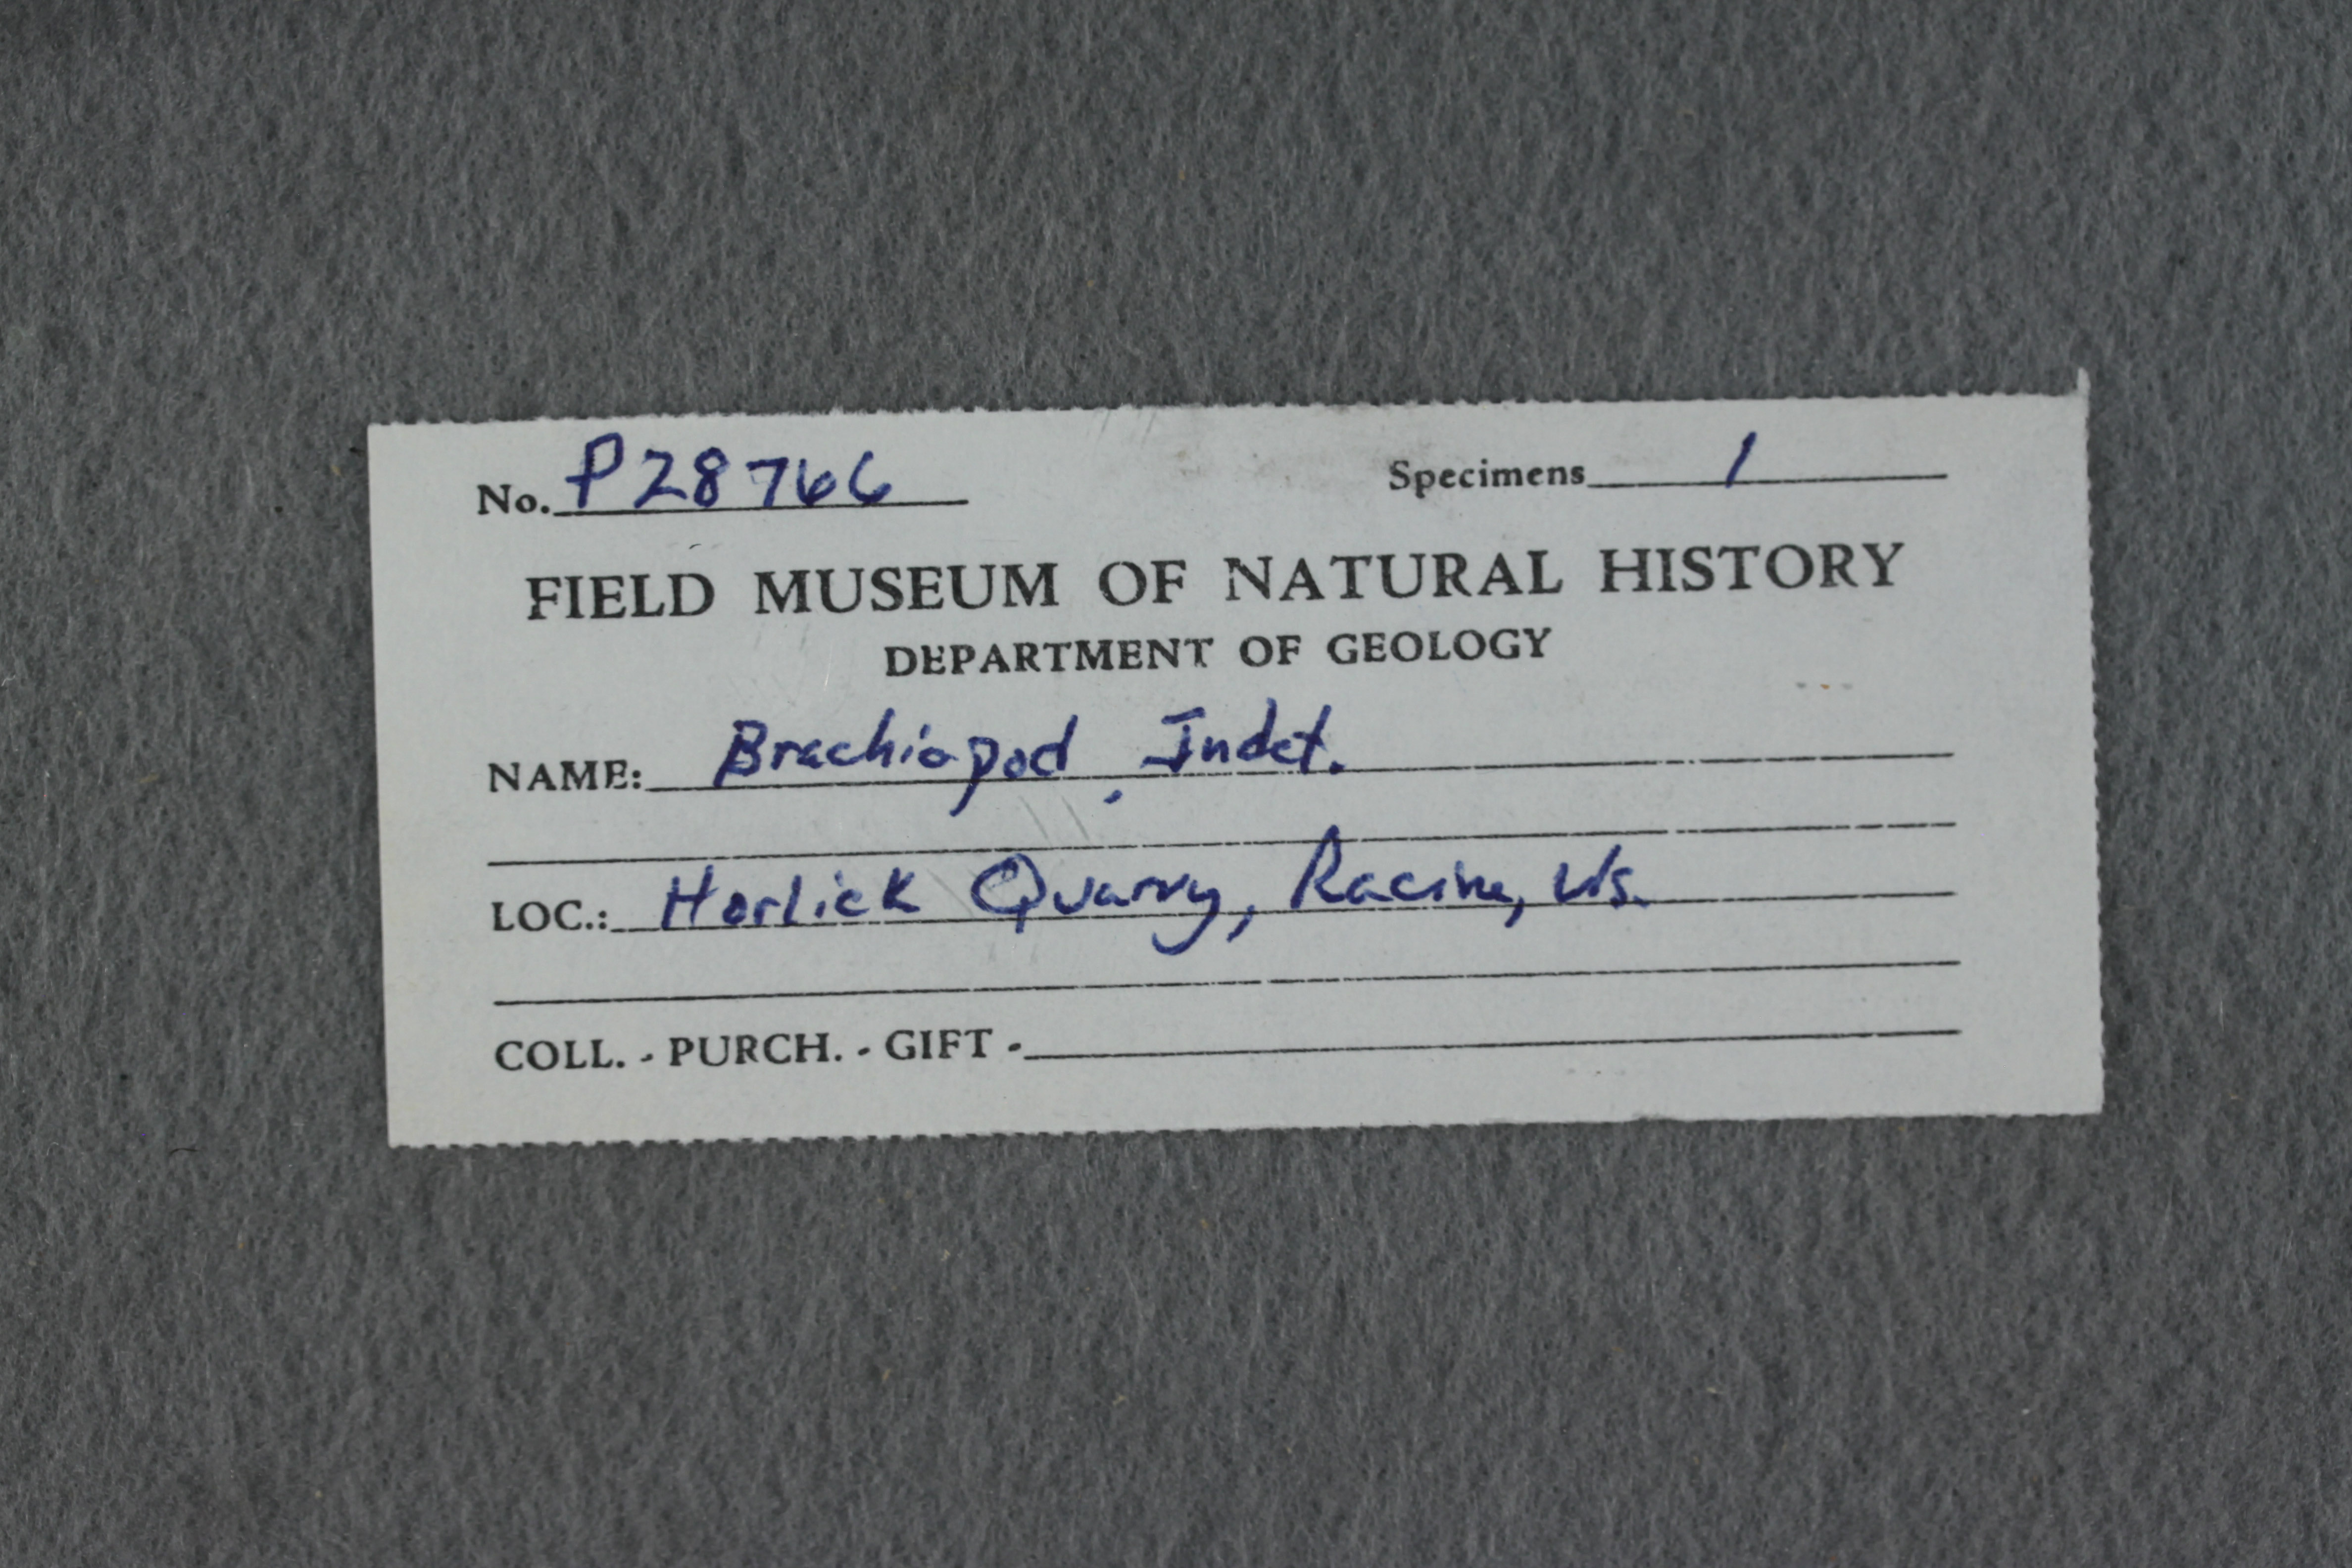 No. P28766 Specimens 1
FIELD MUSEUM OF NATURAL HISTORY
DEPARTMENT OF GEOLOGY
NAME: Brachiopod Indet.
LOC.: Horlick Quarry, Racine, Wis.
COLL. - PURCH. - GIFT -